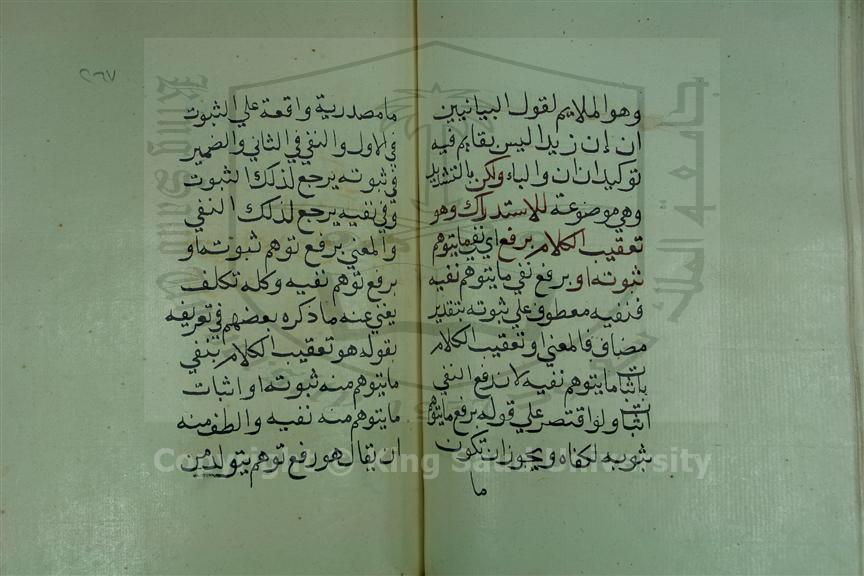 وهو الملايم لقول البيانيين
ان إن زيدا ليس بقايم فيه
توكيدان ان والباء ولكن بالتشديد
وهي موضوعة للاستدراك وهو
تعقيب الكلام برفع اي نفي ما يتوهم
ثبوته او برفع نفي ما يتوهم نفيه
فنفيه معطوف علي ثبوته بتقدير
مضاف فالمعني او تعقيب الكلام
باثبات ما يتوهم نفيه لان رفع النفي
اثبات ولو اقتصر علي قوله برفع ما يتوهم
ثبوته لكفاه ويجوز ان تكون
ما
٢٦٧
ما مصدرية واقعة علي الثبوت
في الاول والنفي في الثاني والضمير
في ثبوته يرجع لذلك الثبوت
وفي نفيه يرجع لذلك النفي
والمعني برفع توهم ثبوته او
برفع توهم نفيه وكله تكلف
يغني عنه ما ذكره بعضهم في تعريفه
بقوله هو تعقيب الكلام بنفي
ما يتوهم منه ثبوته او اثبات
ما يتوهم منه نفيه والطف منه
ان يقال هو رفع توهم يتولد من
جامعة الملك سعود
Copyright © King Saud University